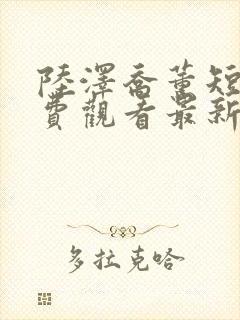 陸澤喬薰短
費觀看最新
多拉克哈